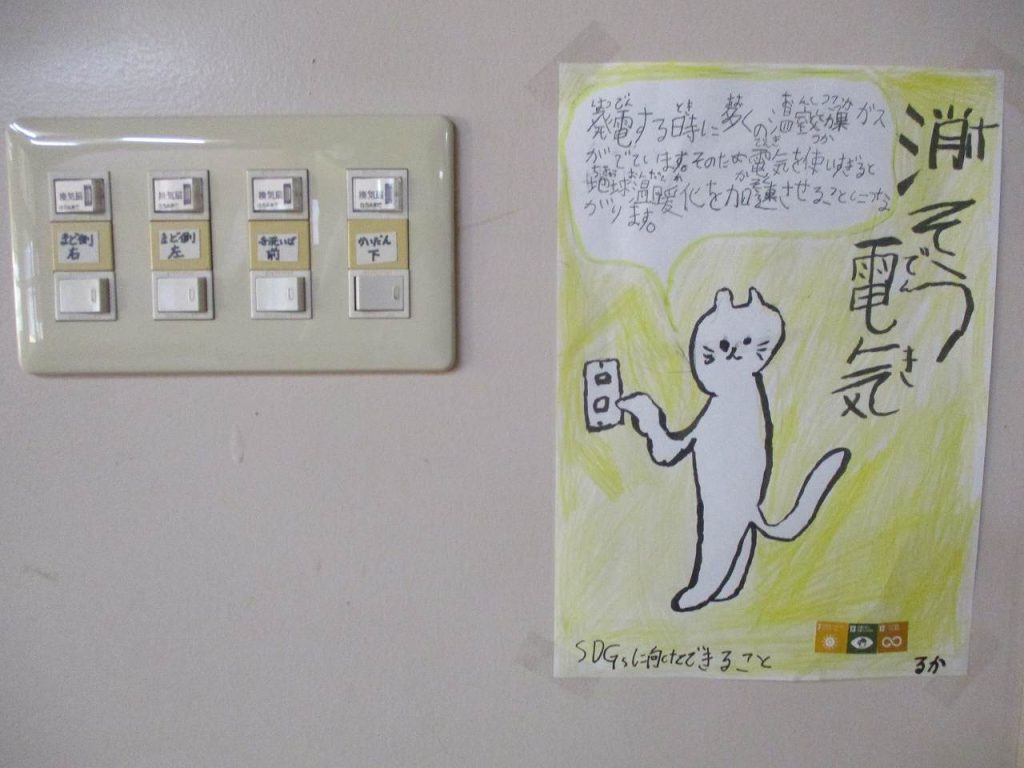 換気扇
換気扇
換気扇
換気扇
まど側
右
まど側
左
手洗いば
前
かいだん
下
消そう
電気
発電する時に多くの温室効果ガス
がでています。そのため電気を使いすぎると
地球温暖化を加速させることにつな
がります。
SDGsに向けてできること
るか